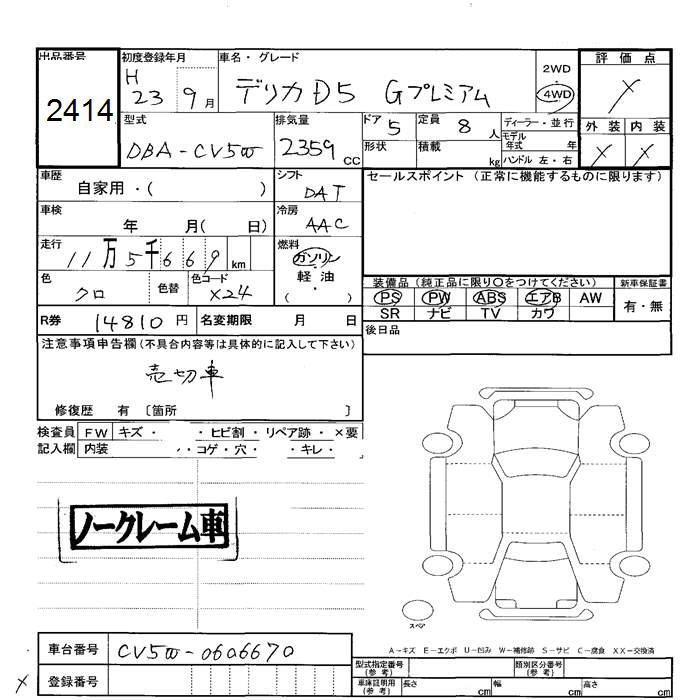 出品番号 初度登録年月 車名・グレード 評価点
2414 H 23 9月 デリカD5 Gプレミアム 2WD 4WD ×
型式 排気量 ドア 5 定員 8人 ディーラー・並行 外装 内装
DBA-CV5W 2359cc 形状 積載 kg モデル年式 年 ハンドル 左・右 × ×
車歴 自家用・( ) シフト DAT セールスポイント(正常に機能するものに限ります)
車検 年 月( 日) 冷房 AAC
走行 11万5千669km 燃料 ガソリン 軽油 ( )
色 クロ 色替 色コード X24 装備品(純正品に限り〇をつけてください) 新車保証書
PS PW ABS エアB AW 有・無
SR ナビ TV カワ
R券 14810円 名変期限 月 日 後日品
注意事項申告欄(不具合内容等は具体的に記入して下さい)
売切車
修復歴 有 〔箇所 〕
検査員 FW キズ・ ・ヒビ割・リペア跡・×要
記入欄 内装 ・・コゲ・穴・ ・キレ・
ノークレーム車
スペア
A-キズ E-エクボ U-凹み W-補修跡 S-サビ C-腐食 XX-交換済
車台番号 CV5W-0606670
× 登録番号
型式指定番号(参考) 類別区分番号(参考)
車庫証明用(参考) 長さ cm 幅 cm 高さ cm